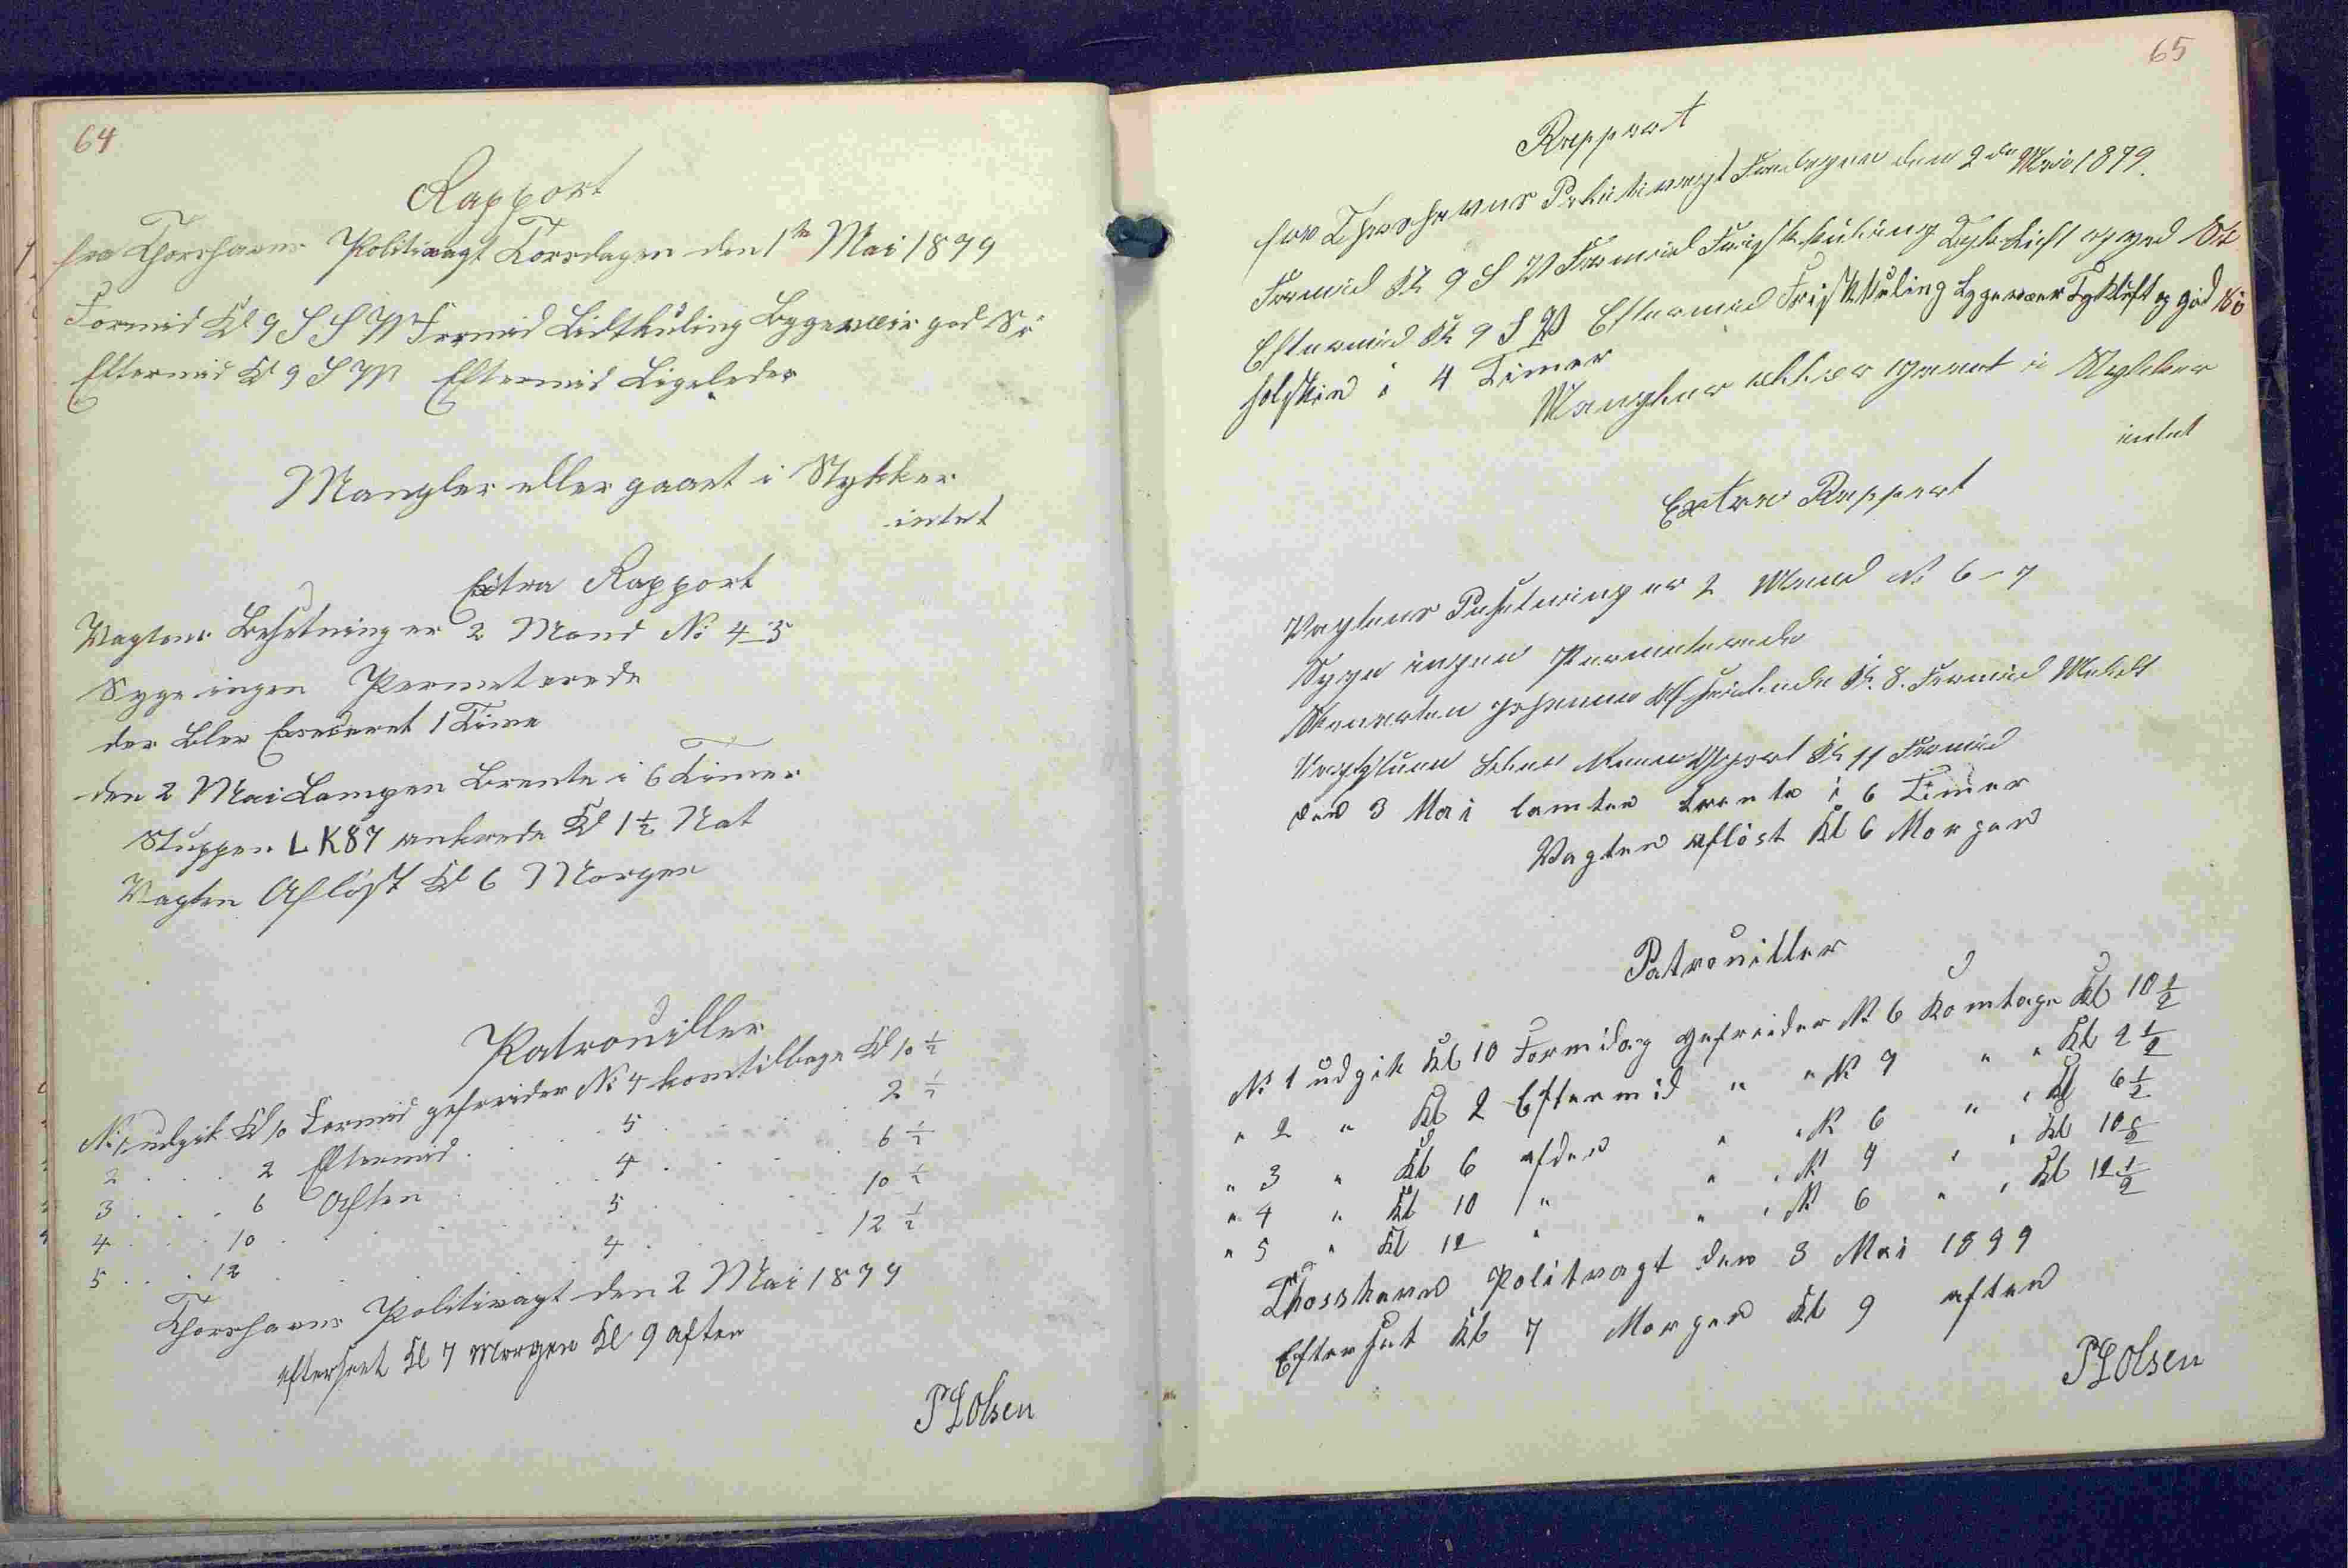 64
Rapport
fra Thorshavns Politivagt Torsdagen den 1te Mai 1879
Formid Kl 9 S S W Formid Lidtkuling Bygeveir god Sö
Eftermid Kl 9 S W Eftermid Ligeledes
Mangler eller gaaet i Stykker
intet
Extra Rapport
Vagtens Besetning er 2 Mand No 4-5
Syge ingen Permeterede
der Blev Exseceret 1 Time
den 2 Mai Lampen Brente i 6 Timer
Sluppen LK87 ankrede Kl 1½ Nat
Vagten Aflöst Kl 6 Morgen
Patrouiller
No 1 udgik Kl 10 Formid gefreider No 4 kom tilbage Kl 10 ½
2 . . . . 2 Eftermid . . . . 5 . . . . 2 ½
3 . . . . 6 Aften . . . . 4 . . . . 6 ½
4 . . . 10 . . . . 5 . . . . 10 ½
5 . . . 12 . . . . 4 . . . . 12 ½
Thorshavns Politivagt den 2 Mai 1879
efterseet Kl 7 Morgen Kl 9 aften
P Olsen
65
Rapport
fra Thorshavns Politivagt Fredagen den 2den Mai 1879.
Formid Kl 9 S V Formid Frisk Kuling Tyk Luft og god Sö
Eftermid Kl 9 S W Eftermid Frisk Kuling Bygevær Tyk Luft og god Sö
solskin i 4 Timer
Mangler eller gaaet i Stykker
intet
Extra Rapport
Vagtens Besetning er 2 Mand No 6-7
Syge ingen Permeterede
Kl. 8. Formid
Kl 11 Formid
den 3 Mai lamten brente i 6 Timer
Vagten aflöst Kl 6 Morgen
Patrouiller
No 1 udgik Kl 10 Formidag gefreider No 6 Komtage Kl 10 ½
" 2 " Kl 2 Eftermid " " No 7 " " Kl 2 ½
" 3 " Kl 6 aften " " No 6 " " Kl 6 ½
" 4 " Kl 10 " " " No 7 " " Kl 10 ½
" 5 " Kl 12 " " " No 6 " " Kl 12 ½
Thosshavn Politvagt den 3 Mai 1879
Efterset Kl 7 Morgen Kl 9 aften
P Olsen